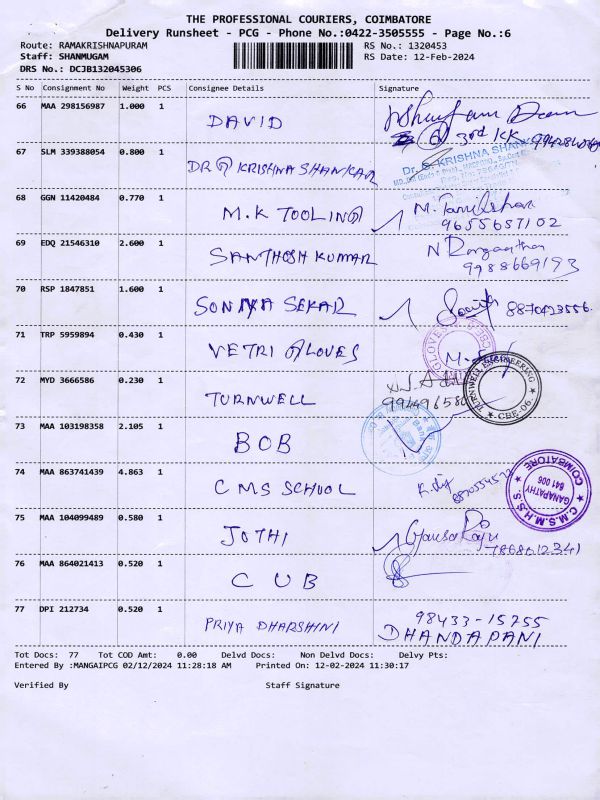 THE PROFESSIONAL COURIERS, COIMBATORE
Delivery Runsheet - PCG - Phone No.:0422-3505555 - Page No.:6
Route: RAMAKRISHNAPURAM RS No.: 1320453
Staff: SHANMUGAM RS Date: 12-Feb-2024
DRS No.: DCJB132045306
S No Consignment No Weight PCS Consignee Details Signature
66 MAA 298156987 1.000 1 DAVID
3rd KK
67 SLM 339388054 0.800 1 DR KRISHNA SHANKAR Dr. S. KRISHNA SHANKAR
68 GGN 11420484 0.770 1 M.K TOOLING M. Tamilselvan
9655657102
69 EDQ 21546310 2.600 1 SANTHOSH KUMAR N Ranganathan
9988669193
70 RSP 1847851 1.600 1 SONIYA SEKAR 8870423556.
71 TRP 5959894 0.430 1 VETRI GLOVES
72 MYD 3666586 0.230 1 TURNWELL TURNWELL ENGINEERING ★ CBE-06. ★
73 MAA 103198358 2.105 1 BOB
74 MAA 863741439 4.863 1 CMS SCHOOL C.M.S.M.H.S.S. ★ COIMBATORE ★
GANAPATHY
641 006
75 MAA 104099489 0.580 1 JOTHI
7868012341
76 MAA 864021413 0.520 1 CUB
77 DPI 212734 0.520 1 PRIYA DHARSHINI 98433-15755
DHANDAPANI
Tot Docs: 77 Tot COD Amt: 0.00 Delvd Docs: Non Delvd Docs: Delvy Pts:
Entered By :MANGAIPCG 02/12/2024 11:28:18 AM Printed On: 12-02-2024 11:30:17
Verified By Staff Signature